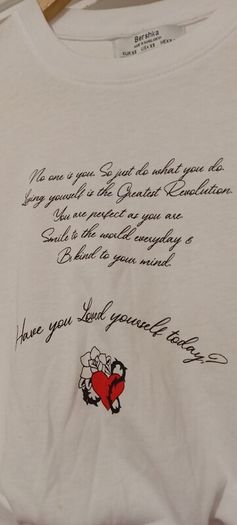 Bershka
No one is you. So just do what you do
Loving yourself is the Greatest Revolution.
You are perfect as you are
Smile to the world everyday &
Be kind to your mind
Have you Loved yourself today?